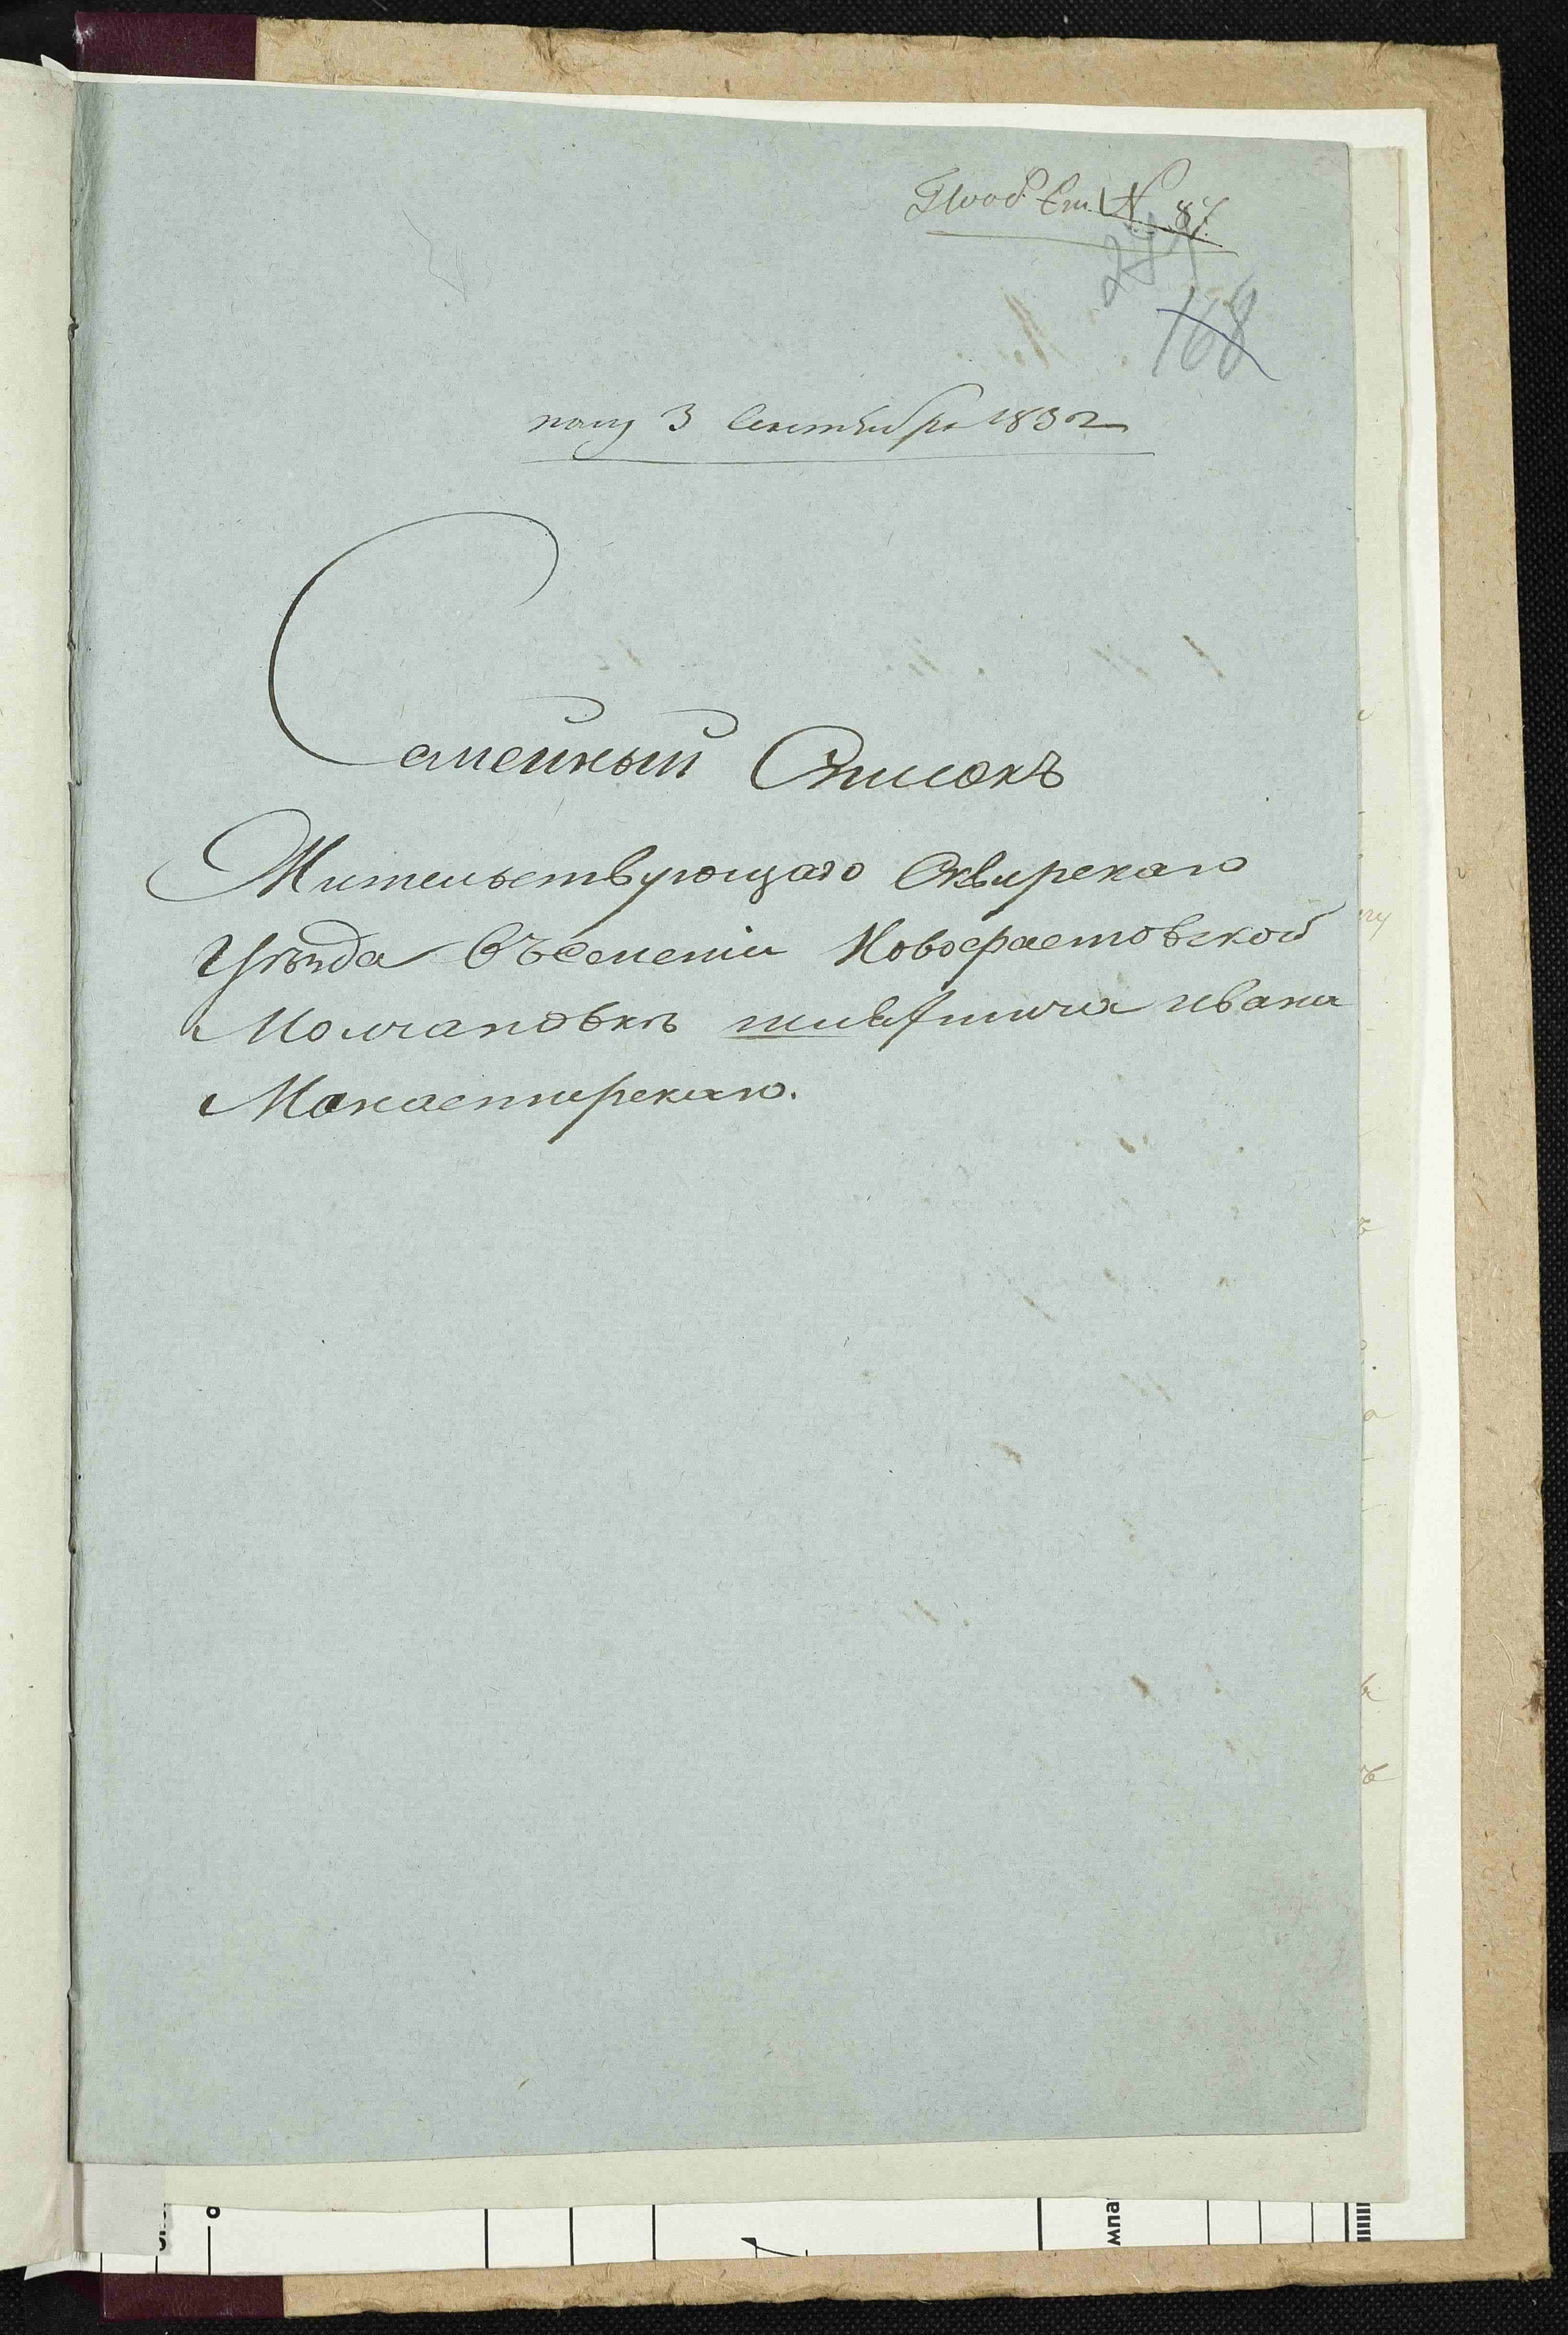 № 87
168
полу 3 Сентября 1832
Семейный Списокъ
Жительствующаго Сквирскаго
Уѣзда Въ имении Новофастовской
Молчановкѣ шляхтича Ивана
Монастирскаго.